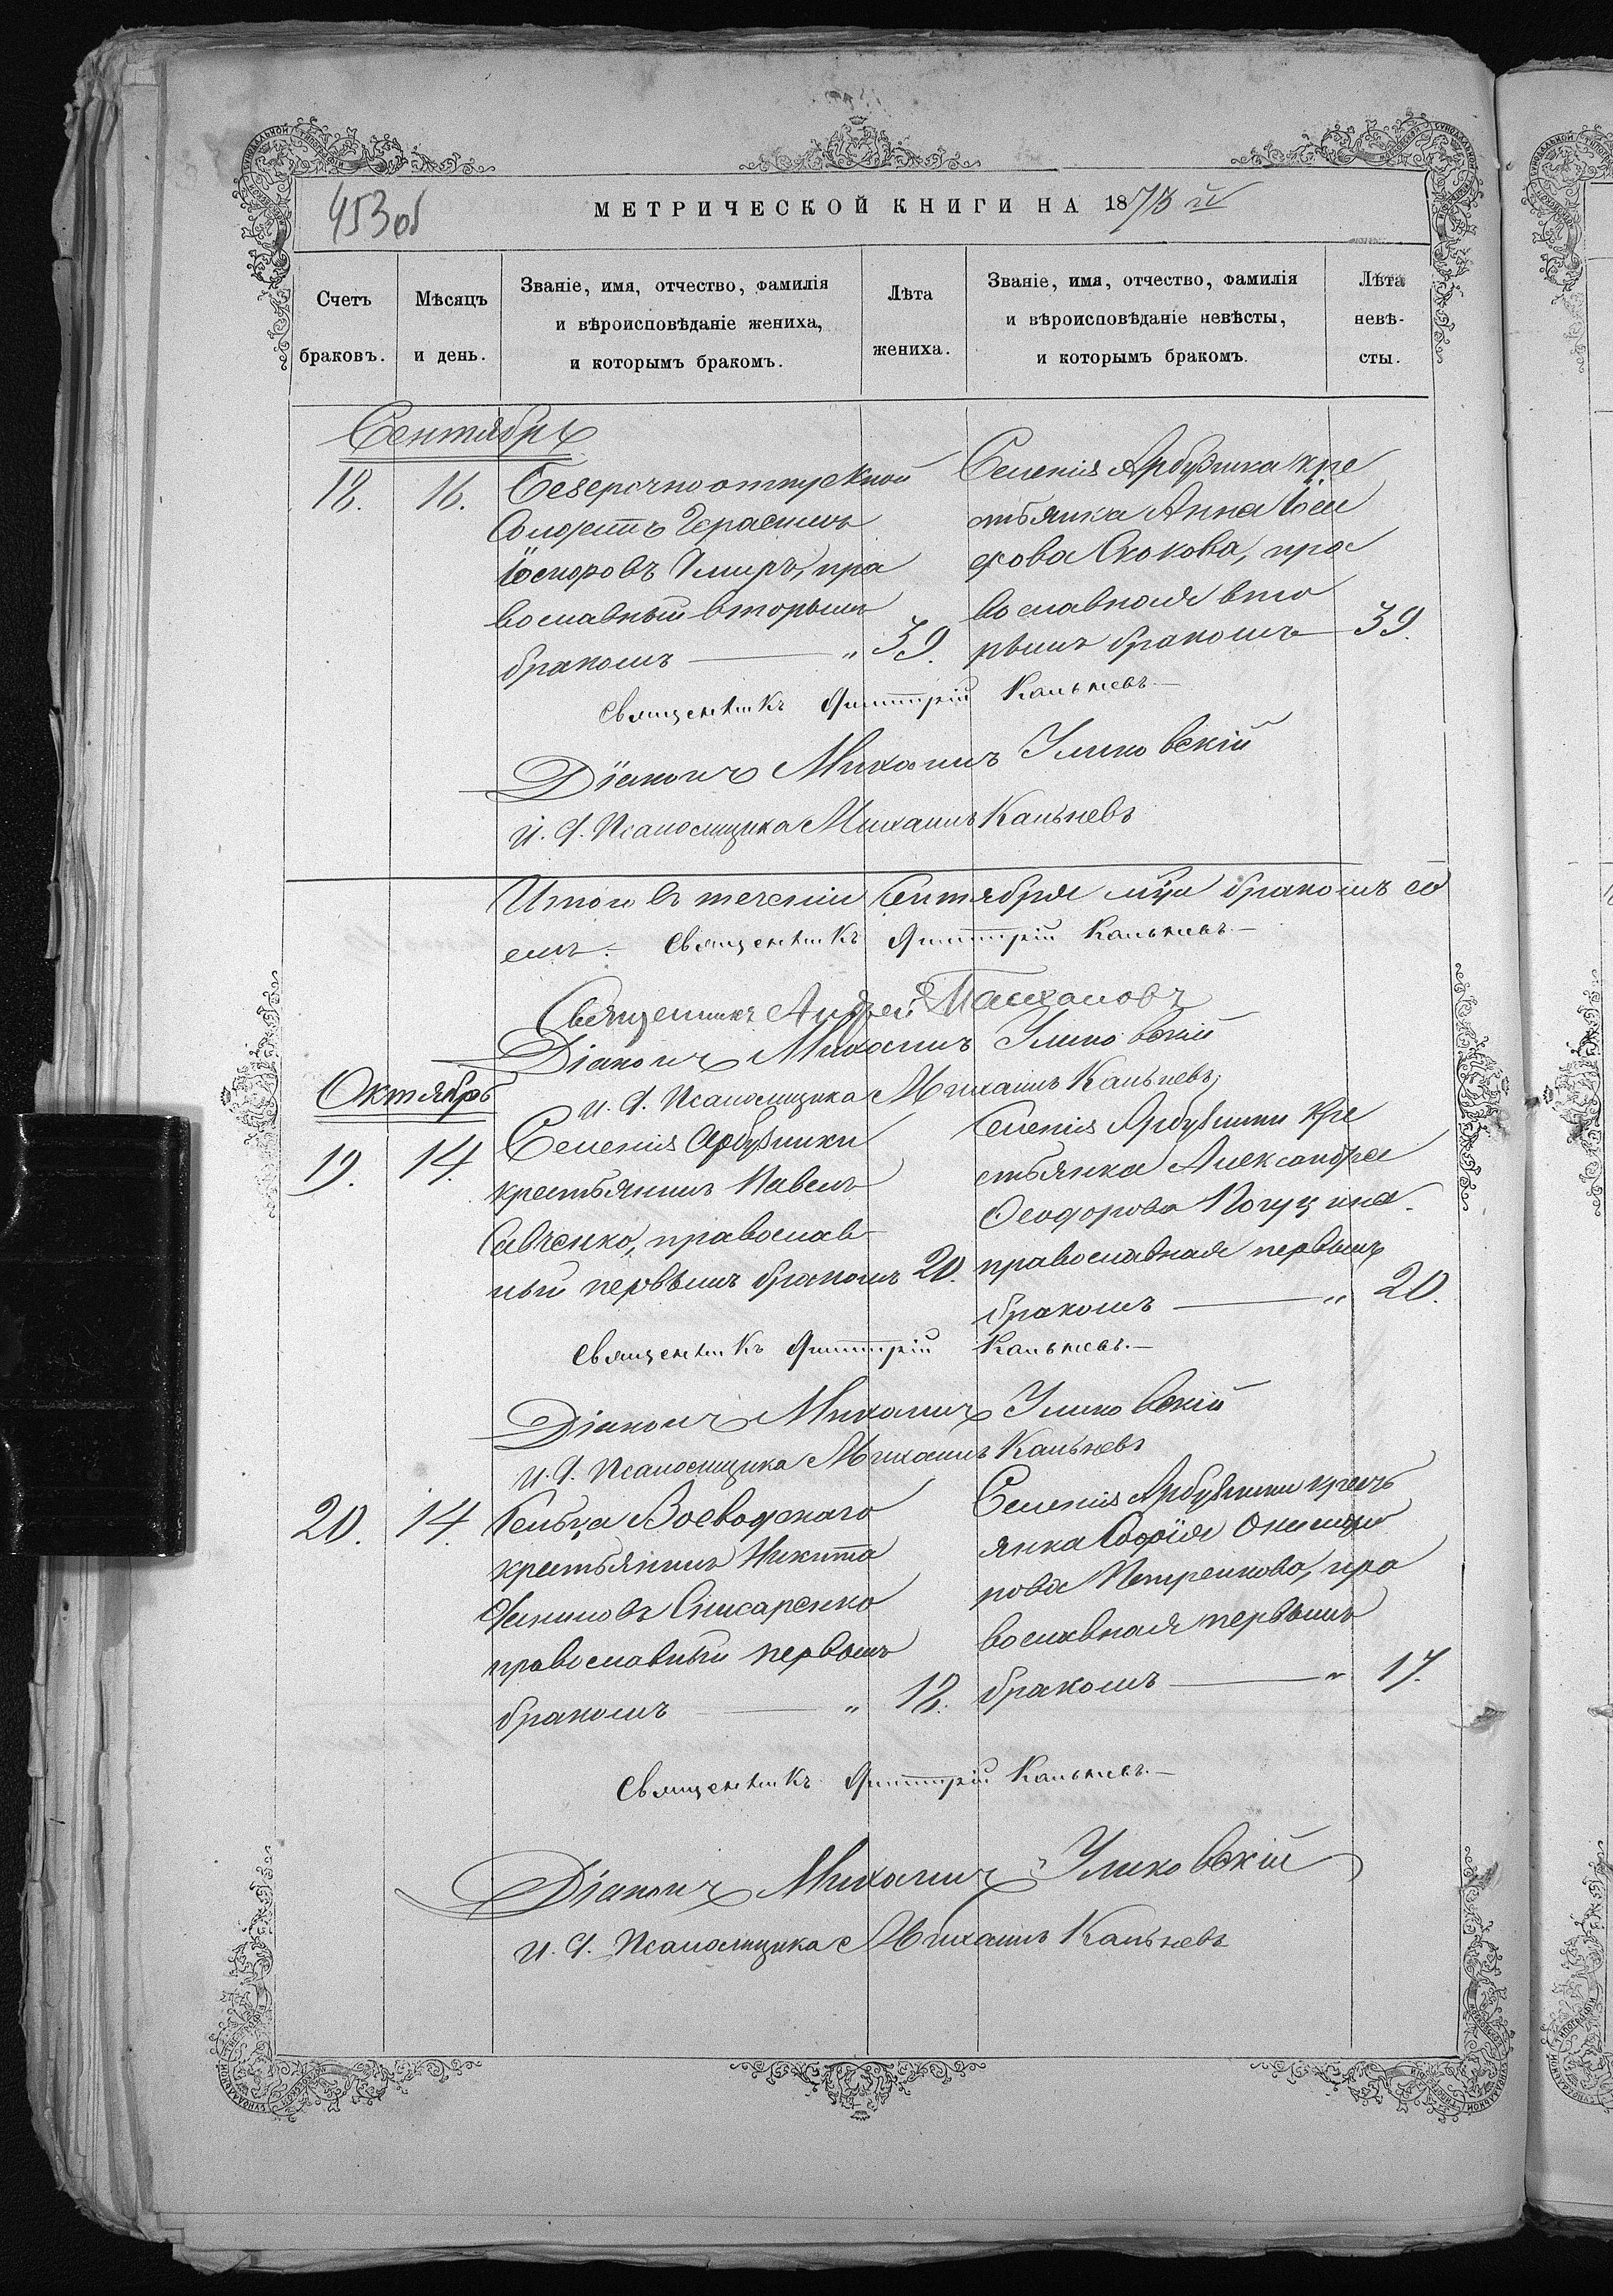 453 об
МЕТРИЧЕСКОЙ КНИГИ НА 1873 й
Счетъ
браковъ.
Мѣсяцъ
и день.
Званіе, имя, отчество, фамилія
и вѣроисповѣданіе жениха,
и которымъ бракомъ.
Лѣта
жениха.
Званіе, имя, отчество, фамилія
и вѣроисповѣданіе невѣсты,
и которымъ бракомъ.
Лѣта
невѣ-
сты.
Сентябрь
18. 16.
Безсрочноотпускной
Солдатъ Герасимъ
пра
вославный вторымъ
бракомъ — „ 39.
Селенія Арбузинка кре
стьянка Анна Іоси
фова Скокова, пра
вославная вто
рымъ бракомъ — 39.
Священникъ Димитрій Кальневъ.—
Діаконъ Михаилъ
И. д. Псаломщика Михаилъ Кальневъ
Итого въ теченіи Сентября м‑ца бракомъ со
емъ. Священникъ Димитрій Кальневъ.—
Священникъ Андрей
Діаконъ Михаилъ
и. д. Псаломщика Михаилъ Кальневъ
Октябрь
19. 14.
Селенія Арбузинки
крестьянинъ Павелъ
Савченко, православ
ный первымъ бракомъ 20.
Селенія Арбузинки кре
стьянка Александра
Феодорова
православная первымъ
бракомъ — „ 20.
Священникъ Димитрій Кальневъ.—
Діаконъ Михаилъ
И. д. Псаломщика Михаилъ Кальневъ
20. 14.
Сельца Воеводскаго
крестьянинъ Никита
Слисаренко
православный первымъ
бракомъ — „ 18.
Селенія Арбузинки крест
янка Софія
рова Петренкова, пра
вославная первымъ
бракомъ — „ 17.
Священникъ Димитрій Кальневъ.—
Діаконъ Михаилъ
и. д. Псаломщика Михаилъ Кальневъ